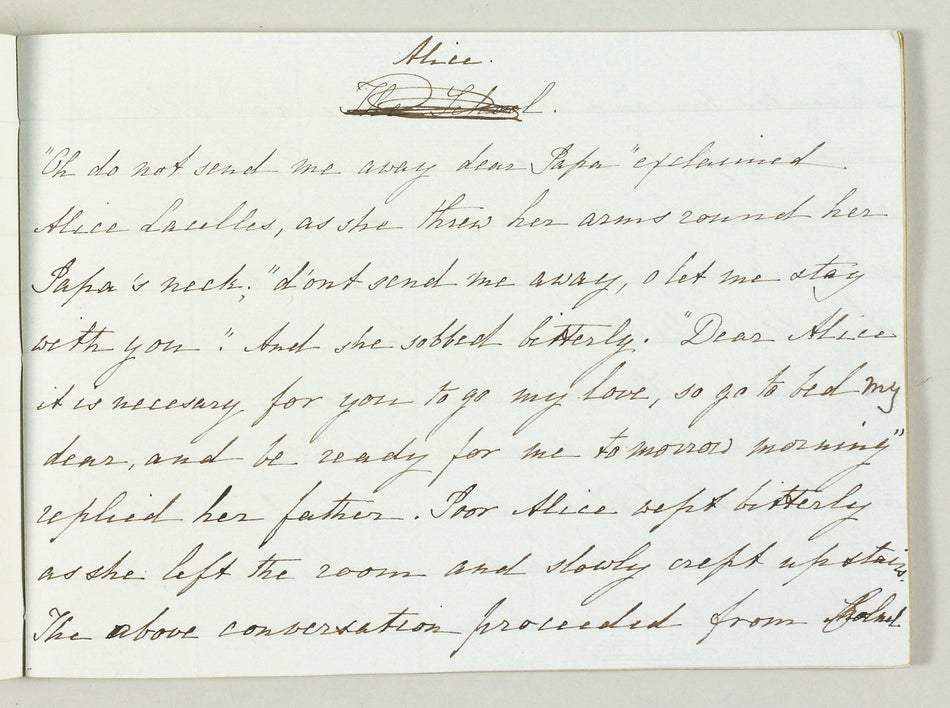 Alice.
The School.
"Oh do not send me away dear Papa" exclaimed
Alice Lacelles, as she threw her arms round her
Papa's neck; "d'ont send me away, o let me stay
with you". And she sobbed bitterly. "Dear Alice
it is necesary for you to go my love, so go to bed my
dear, and be ready for me tomorrow morning"
replied her father. Poor Alice wept bitterly
as she left the room and slowly crept upstairs.
The above conversation proceeded from